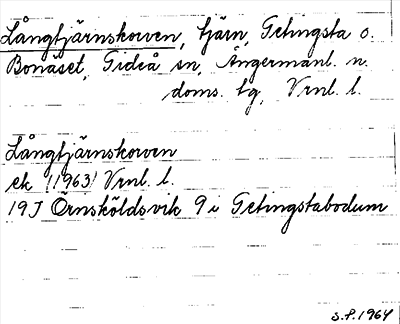 Långtjärnskorven, tjärn, Getingsta o.
Bonäset, Gideå sn, Ångermanl. n.
doms. tg, Vrnl. l.
Långtjärnskorven
ek (1963) Vrnl. l.
19J Örnsköldsvik 9i Getingstabodum
S.P. 1964